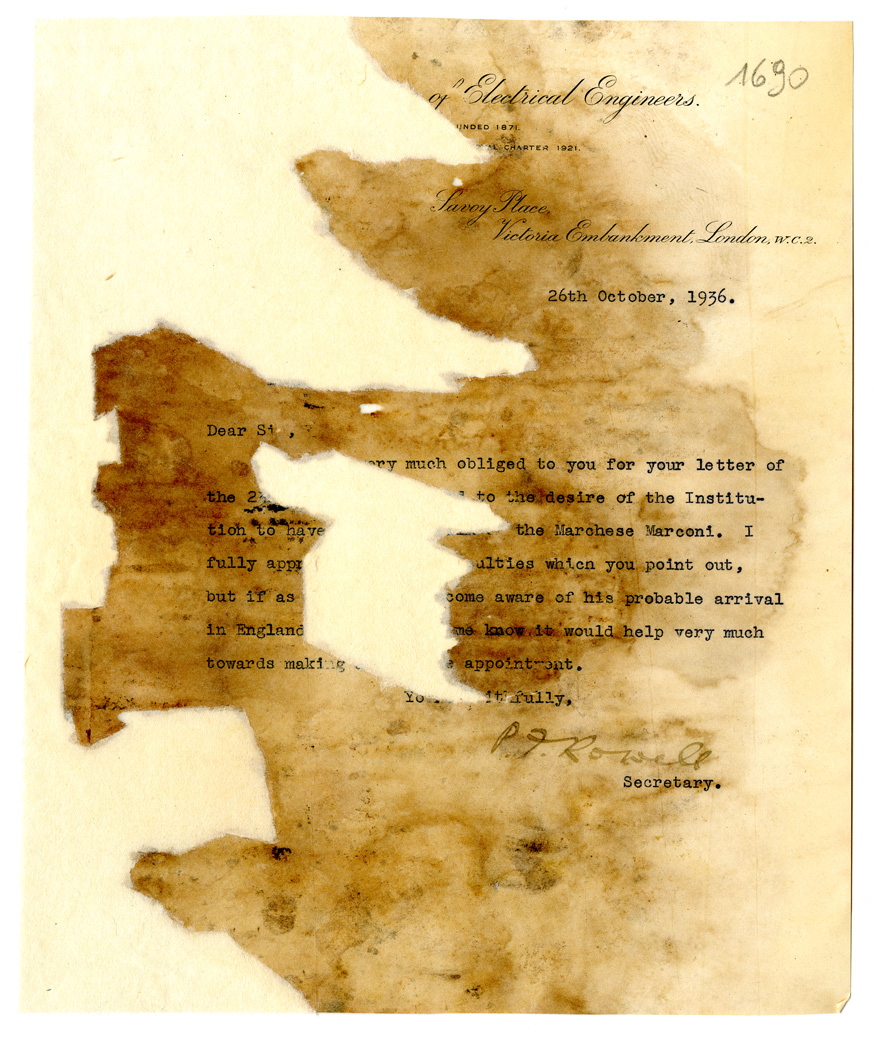 1690
of Electrical Engineers.
UNDED 1871.
AL CHARTER 1921.
Savoy Place,
Victoria Embankment, London, W.C.2.
26th October, 1936.
Dear Si ,
ery much obliged to you for your letter of
the 2 to the desire of the Institu-
tion to have the Marchese Marconi. I
fully app ulties which you point out,
but if as come aware of his probable arrival
in England me know it would help very much
towards making appointment.
Yo ithfully,
P. F. Rowell
Secretary.